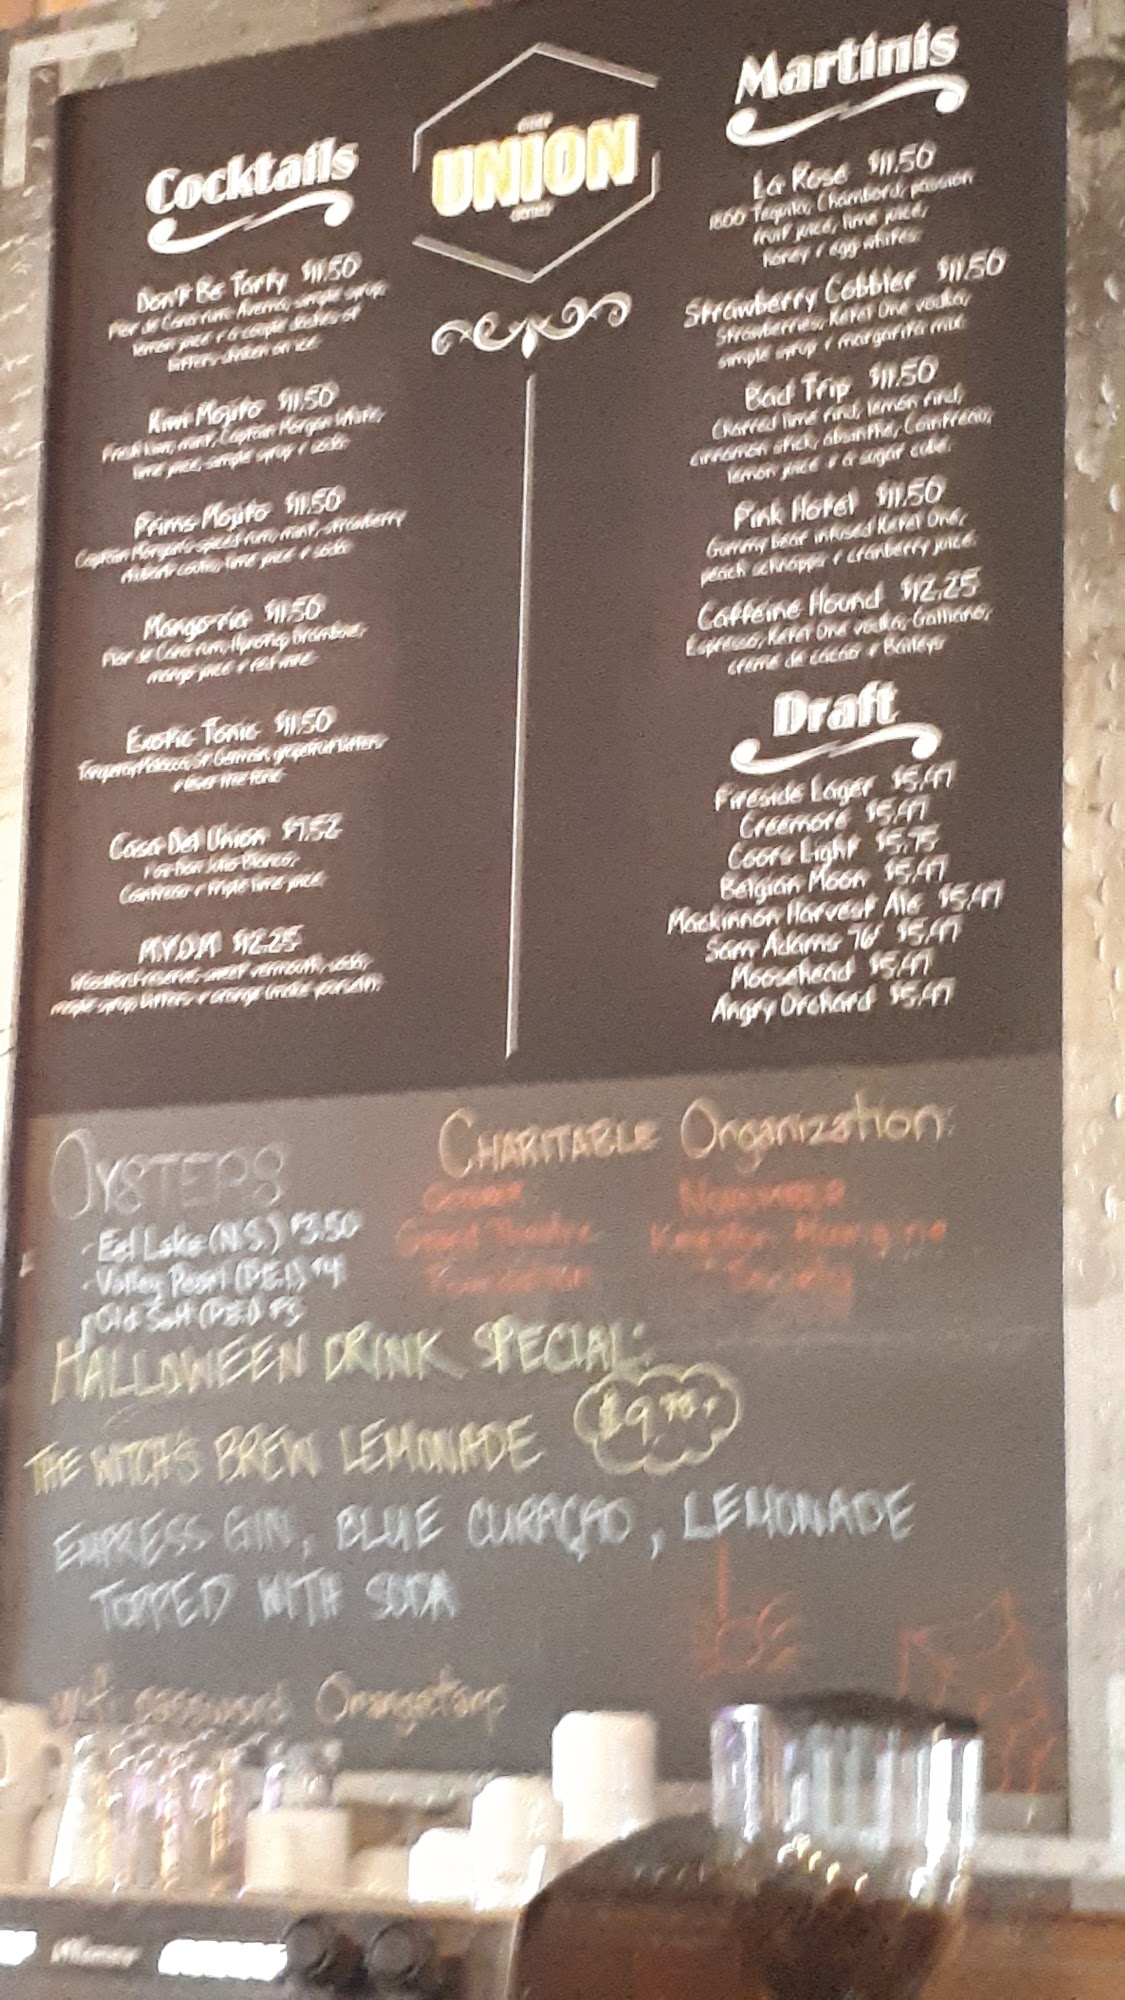 Cocktails
Don't Be Tardy $11.50
Flor de Cana rum, Averna, simple syrup,
lemon juice + a couple dashes of
bitters shaken on ice
Kiwi Mojito $11.50
Fresh kiwi, mint, Captain Morgan White,
lime juice, simple syrup + soda
Prims Mojito $11.50
Captain Morgan's spiced rum, mint, strawberry
rhubarb lime juice + soda
Mango-ria $11.50
Flor de Cana rum,
mango juice + red wine
Exotic Tonic $11.50
Tanqueray Malacca, St Germain, grapefruit bitters
+ fever tree tonic
Casa Del Union
Cointreau + triple lime juice
M.Y.O.M $12.25
Woodford reserve, sweet vermouth, soda,
maple syrup, bitters, + orange (make yourself)
UNION
Martinis
La Rose $11.50
1800 Tequila, Chambord, passion
fruit juice, lime juice,
honey + egg whites
Strawberry Cobbler $11.50
Strawberries, Ketel One vodka,
simple syrup + margarita mix
Bad Trip $11.50
Charred lime rind, lemon rind,
cinnamon stick, absinthe, Cointreau,
lemon juice + a sugar cube
Pink Hotel $11.50
Gummy bear infused Ketel One,
peach schnapps + cranberry juice
Caffeine Hound $12.25
Espresso, Ketel One vodka, Galliano,
creme de cacao + Baileys
Draft
Fireside Lager $5.47
Creemore $5.47
Coors Light $5.75
Belgian Moon $5.47
Mackinnon Harvest Ale $5.47
Sam Adams 76' $5.47
Moosehead $5.47
Angry Orchard $5.47
OYSTERS
- Eel Lake (N.S.) $3.50
- Valley Pearl (P.E.I.) $4
Old Salt (P.E.I) $3
CHARITABLE Organization:
Grand Theatre
Foundation
Kingston Humane
Society
HALLOWEEN DRINK SPECIAL:
THE WITCH'S BREW LEMONADE
EMPRESS GIN, BLUE CURAÇAO, LEMONADE
TOPPED WITH SODA
wifi password Orangetang